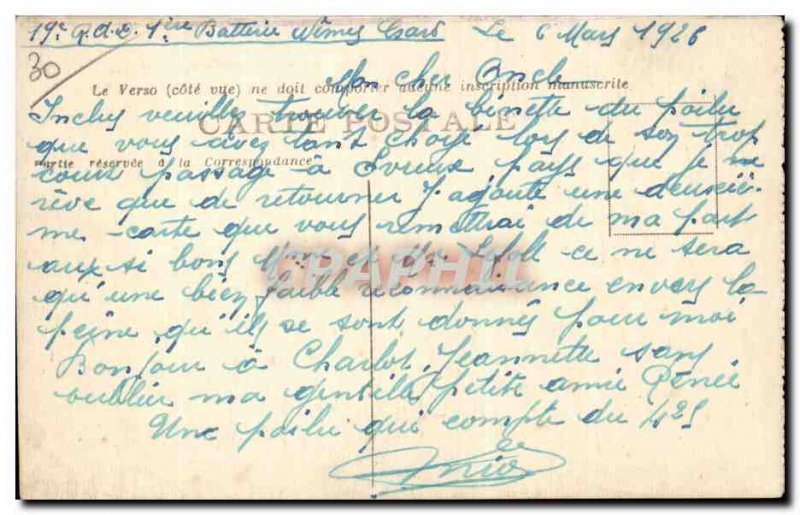 19e R.d.A. 1ère Batterie Nîmes Gard Le 6 Mars 1926
30
Mon cher Oncle
Le Verso (côté vue) ne doit comporter aucune inscription manuscrite
Inclus veuille trouver la binette du poilu
CARTE POSTALE
que vous avez tant choyé lors de son trop
Partie réservée à la Correspondance
court passage à Evreux pays que je ne
rêve que de retourner J'ajoute une deuxiè-
me carte que vous remettrai de ma part
aux si bons de ce ne sera
CPAPHIL
qu'une bien faible reconnaissance envers la
peine qu'ils se sont donnés pour moi
Bonjour à Charlot, Jeannette sans
oublier ma gentille petite amie Renée
Une poilu qui compte du 425